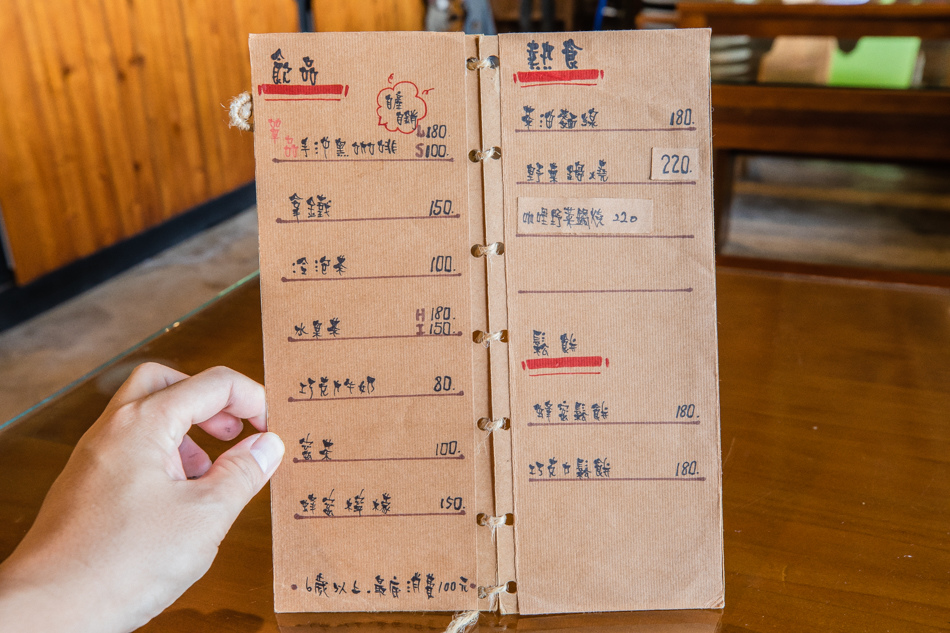 飲品
自產
自銷
單品手沖黑咖啡 L180.
S100.
拿鐵 150.
冷泡茶 100.
水菓茶 H180.
I150.
巧克力牛奶 80.
窨茶 100.
蜂蜜檸檬 150.
•6歲以上.最底消費100元•
熱食
茶油麵線 180.
野菜鍋燒 220.
咖哩野菜鍋燒 220
鬆餅
蜂蜜鬆餅 180.
巧克力鬆餅 180.